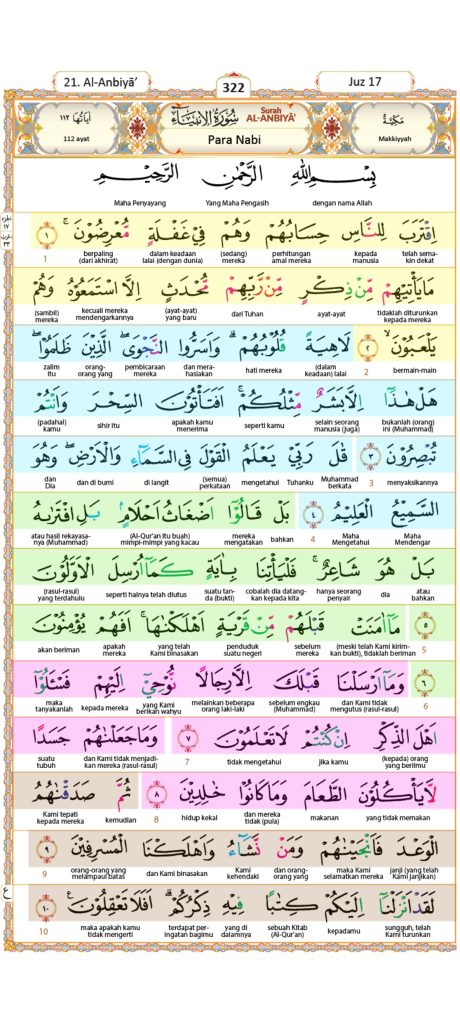 21. Al-Anbiyā’
322
Juz 17
اٰيَاتُهَا ١١٢
112 ayat
سُوْرَةُ الْاَنْبِيَاۤءِ
Surah AL-ANBIYĀ’
Para Nabi
مَكِّيَّةٌ
Makkiyyah
بِسْمِ اللّٰهِ الرَّحْمٰنِ الرَّحِيْمِ
dengan nama Allah Yang Maha Pengasih Maha Penyayang
الجزء ١٧
اِقْتَرَبَ لِلنَّاسِ حِسَابُهُمْ وَهُمْ فِيْ غَفْلَةٍ مُّعْرِضُوْنَ ۚ ١
telah semakin dekat kepada manusia perhitungan amal mereka (sedang) mereka dalam keadaan lalai (dengan dunia) berpaling (dari akhirat) 1
مَا يَأْتِيْهِمْ مِّنْ ذِكْرٍ مِّنْ رَّبِّهِمْ مُّحْدَثٍ اِلَّا اسْتَمَعُوْهُ وَهُمْ
tidaklah diturunkan kepada mereka ayat-ayat dari Tuhan (ayat-ayat) yang baru kecuali mereka mendengarkannya (sambil) mereka
يَلْعَبُوْنَ ۙ ٢ لَاهِيَةً قُلُوْبُهُمْ ۗ وَاَسَرُّوا النَّجْوَى ۖ الَّذِيْنَ ظَلَمُوْا ۖ
bermain-main 2 (dalam keadaan) lalai hati mereka dan merahasiakan pembicaraan mereka orang-orang yang zalim itu
هَلْ هٰذَآ اِلَّا بَشَرٌ مِّثْلُكُمْ ۚ اَفَتَأْتُوْنَ السِّحْرَ وَاَنْتُمْ
bukanlah (orang) ini (Muhammad) selain seorang manusia (juga) seperti kamu apakah kamu menerima sihir itu (padahal) kamu
تُبْصِرُوْنَ ٣ قٰلَ رَبِّيْ يَعْلَمُ الْقَوْلَ فِى السَّمَاۤءِ وَالْاَرْضِ ۖ وَهُوَ
menyaksikannya 3 Muhammad berkata Tuhanku mengetahui (semua) perkataan di langit dan di bumi dan Dia
السَّمِيْعُ الْعَلِيْمُ ٤ بَلْ قَالُوْٓا اَضْغَاثُ اَحْلَامٍ ۢ بَلِ افْتَرٰىهُ
Maha Mendengar Maha Mengetahui 4 bahkan mereka mengatakan (Al-Qur'an itu buah) mimpi-mimpi yang kacau atau hasil rekayasanya (Muhammad)
بَلْ هُوَ شَاعِرٌ ۚ فَلْيَأْتِنَا بِاٰيَةٍ كَمَآ اُرْسِلَ الْاَوَّلُوْنَ
atau bahkan dia hanya seorang penyair cobalah dia datangkan kepada kita suatu tanda (bukti) seperti halnya telah diutus (rasul-rasul) yang terdahulu
٥ مَآ اٰمَنَتْ قَبْلَهُمْ مِّنْ قَرْيَةٍ اَهْلَكْنٰهَا ۚ اَفَهُمْ يُؤْمِنُوْنَ
5 (meski telah Kami kirimkan bukti), tidaklah beriman sebelum mereka penduduk suatu negeri yang telah Kami binasakan apakah mereka akan beriman
٦ وَمَآ اَرْسَلْنَا قَبْلَكَ اِلَّا رِجَالًا نُّوْحِيْٓ اِلَيْهِمْ فَسْـَٔلُوْٓا
6 dan Kami tidak mengutus (rasul-rasul) sebelum engkau (Muhammad) melainkan beberapa orang laki-laki yang Kami berikan wahyu kepada mereka maka tanyakanlah
اَهْلَ الذِّكْرِ اِنْ كُنْتُمْ لَا تَعْلَمُوْنَ ٧ وَمَا جَعَلْنٰهُمْ جَسَدًا
(kepada) orang yang berilmu jika kamu tidak mengetahui 7 dan Kami tidak menjadikan mereka (rasul-rasul) suatu tubuh
لَّا يَأْكُلُوْنَ الطَّعَامَ وَمَا كَانُوْا خٰلِدِيْنَ ٨ ثُمَّ صَدَقْنٰهُمُ
yang tidak memakan makanan dan mereka tidak (pula) hidup kekal 8 kemudian Kami tepati kepada mereka
الْوَعْدَ فَاَنْجَيْنٰهُمْ وَمَنْ نَّشَاۤءُ وَاَهْلَكْنَا الْمُسْرِفِيْنَ ٩
janji (yang telah Kami janjikan) maka Kami selamatkan mereka dan orang-orang yang Kami kehendaki dan Kami binasakan orang-orang yang melampaui batas 9
ع
لَقَدْ اَنْزَلْنَآ اِلَيْكُمْ كِتٰبًا فِيْهِ ذِكْرُكُمْ ۗ اَفَلَا تَعْقِلُوْنَ ࣖ ١٠
sungguh, telah Kami turunkan kepadamu sebuah Kitab (Al-Qur'an) yang di dalamnya terdapat peringatan bagimu maka apakah kamu tidak mengerti 10